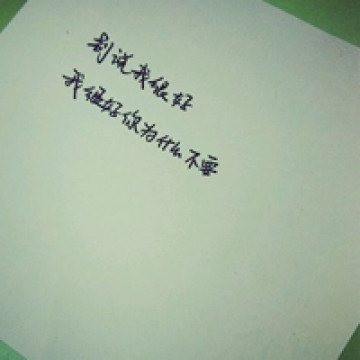 别说我很好
我很好你为什么不要